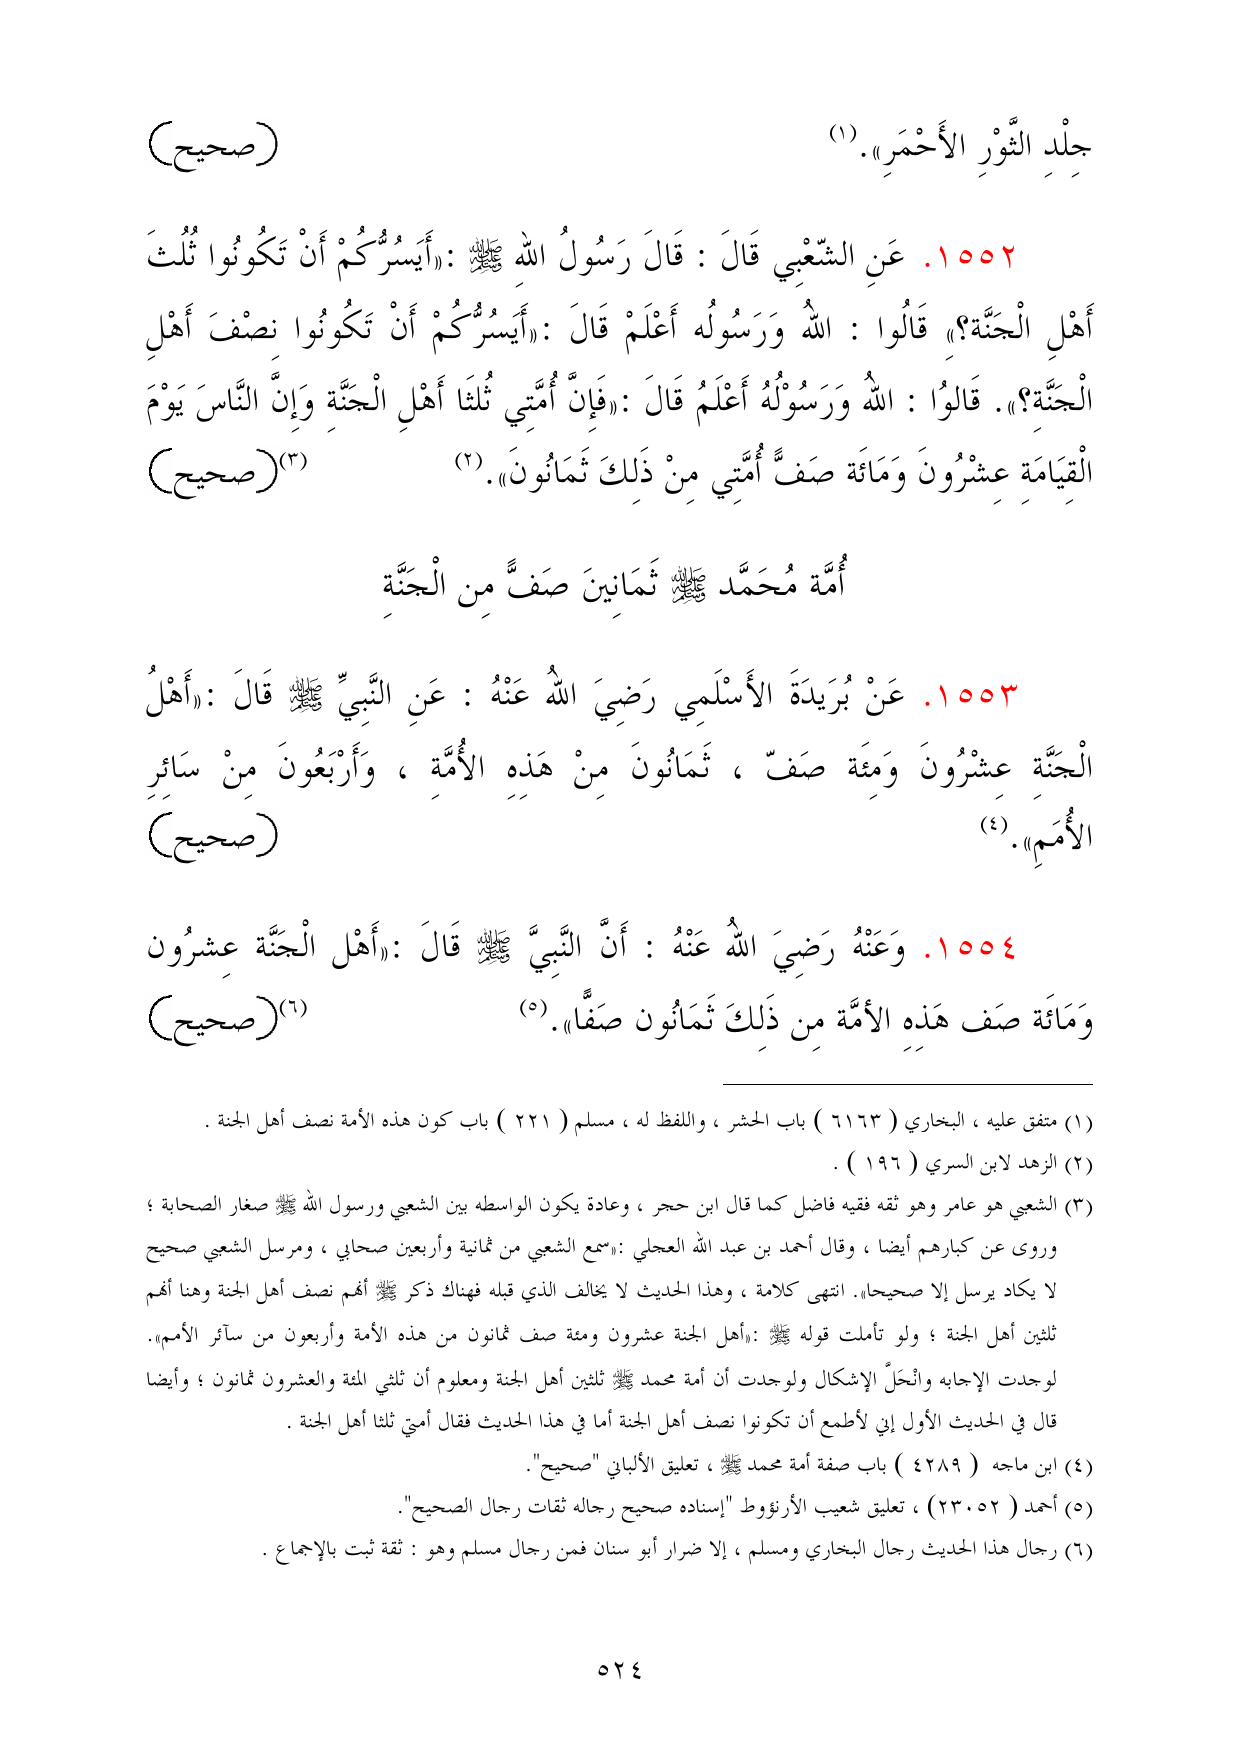 جِلْدِ الثَّوْرِ الأَحْمَرِ». (١) (صحيح)
١٥٥٢. عَنِ الشّعْبِي قَالَ : قَالَ رَسُولُ اللهِ ﷺ :«أَيَسُرُّكُمْ أَنْ تَكُونُوا ثُلُثَ
أَهْلِ الْجَنَّة؟» قَالُوا : اللهُ وَرَسُولُه أَعْلَمْ قَالَ :«أَيَسُرُّكُمْ أَنْ تَكُونُوا نِصْفَ أَهْلِ
الْجَنَّةِ؟». قَالوُا : اللهُ وَرَسُوْلُهُ أَعْلَمُ قَالَ :«فَإِنَّ أُمَّتِي ثُلثَا أَهْلِ الْجَنَّةِ وَإِنَّ النَّاسَ يَوْمَ
الْقِيَامَةِ عِشْرُونَ وَمَائَة صَفًّ أُمَّتِي مِنْ ذَلِكَ ثَمَانُونَ». (٢) (صحيح)(٣)
أُمَّة مُحَمَّد ﷺ ثَمَانِينَ صَفًّ مِن الْجَنَّةِ
١٥٥٣. عَنْ بُرَيدَةَ الأَسْلَمِي رَضِيَ اللهُ عَنْهُ : عَنِ النَّبِيِّ ﷺ قَالَ :«أَهْلُ
الْجَنَّةِ عِشْرُونَ وَمِئَة صَفّ ، ثَمَانُونَ مِنْ هَذِهِ الأُمَّةِ ، وَأَرْبَعُونَ مِنْ سَائِرِ
الأُمَمِ». (٤) (صحيح)
١٥٥٤. وَعَنْهُ رَضِيَ اللهُ عَنْهُ : أَنَّ النَّبِيَّ ﷺ قَالَ :«أَهْل الْجَنَّة عِشرُون
وَمَائَة صَف هَذِهِ الأمَّة مِن ذَلِكَ ثَمَانُون صَفًّا». (٥) (صحيح)(٦)
(١) متفق عليه ، البخاري ( ٦١٦٣ ) باب الحشر ، واللفظ له ، مسلم ( ٢٢١ ) باب كون هذه الأمة نصف أهل الجنة .
(٢) الزهد لابن السري ( ١٩٦ ) .
(٣) الشعبي هو عامر وهو ثقه فقيه فاضل كما قال ابن حجر ، وعادة يكون الواسطه بين الشعبي ورسول الله ﷺ صغار الصحابة ؛
وروى عن كبارهم أيضا ، وقال أحمد بن عبد الله العجلي :«سمع الشعبي من ثمانية وأربعين صحابي ، ومرسل الشعبي صحيح
لا يكاد يرسل إلا صحيحا». انتهى كلامة ، وهذا الحديث لا يخالف الذي قبله فهناك ذكر ﷺ أنهم نصف أهل الجنة وهنا أنهم
ثلثين أهل الجنة ؛ ولو تأملت قوله ﷺ :«أهل الجنة عشرون ومئة صف ثمانون من هذه الأمة وأربعون من سآئر الأمم».
لوجدت الإجابه وانْحَلَّ الإشكال ولوجدت أن أمة محمد ﷺ ثلثين أهل الجنة ومعلوم أن ثلثي المئة والعشرون ثمانون ؛ وأيضا
قال في الحديث الأول إني لأطمع أن تكونوا نصف أهل الجنة أما في هذا الحديث فقال أمتي ثلثا أهل الجنة .
(٤) ابن ماجه ( ٤٢٨٩ ) باب صفة أمة محمد ﷺ ، تعليق الألباني "صحيح".
(٥) أحمد ( ٢٣٠٥٢) ، تعليق شعيب الأرنؤوط "إسناده صحيح رجاله ثقات رجال الصحيح".
(٦) رجال هذا الحديث رجال البخاري ومسلم ، إلا ضرار أبو سنان فمن رجال مسلم وهو : ثقة ثبت بالإجماع .
٥٢٤